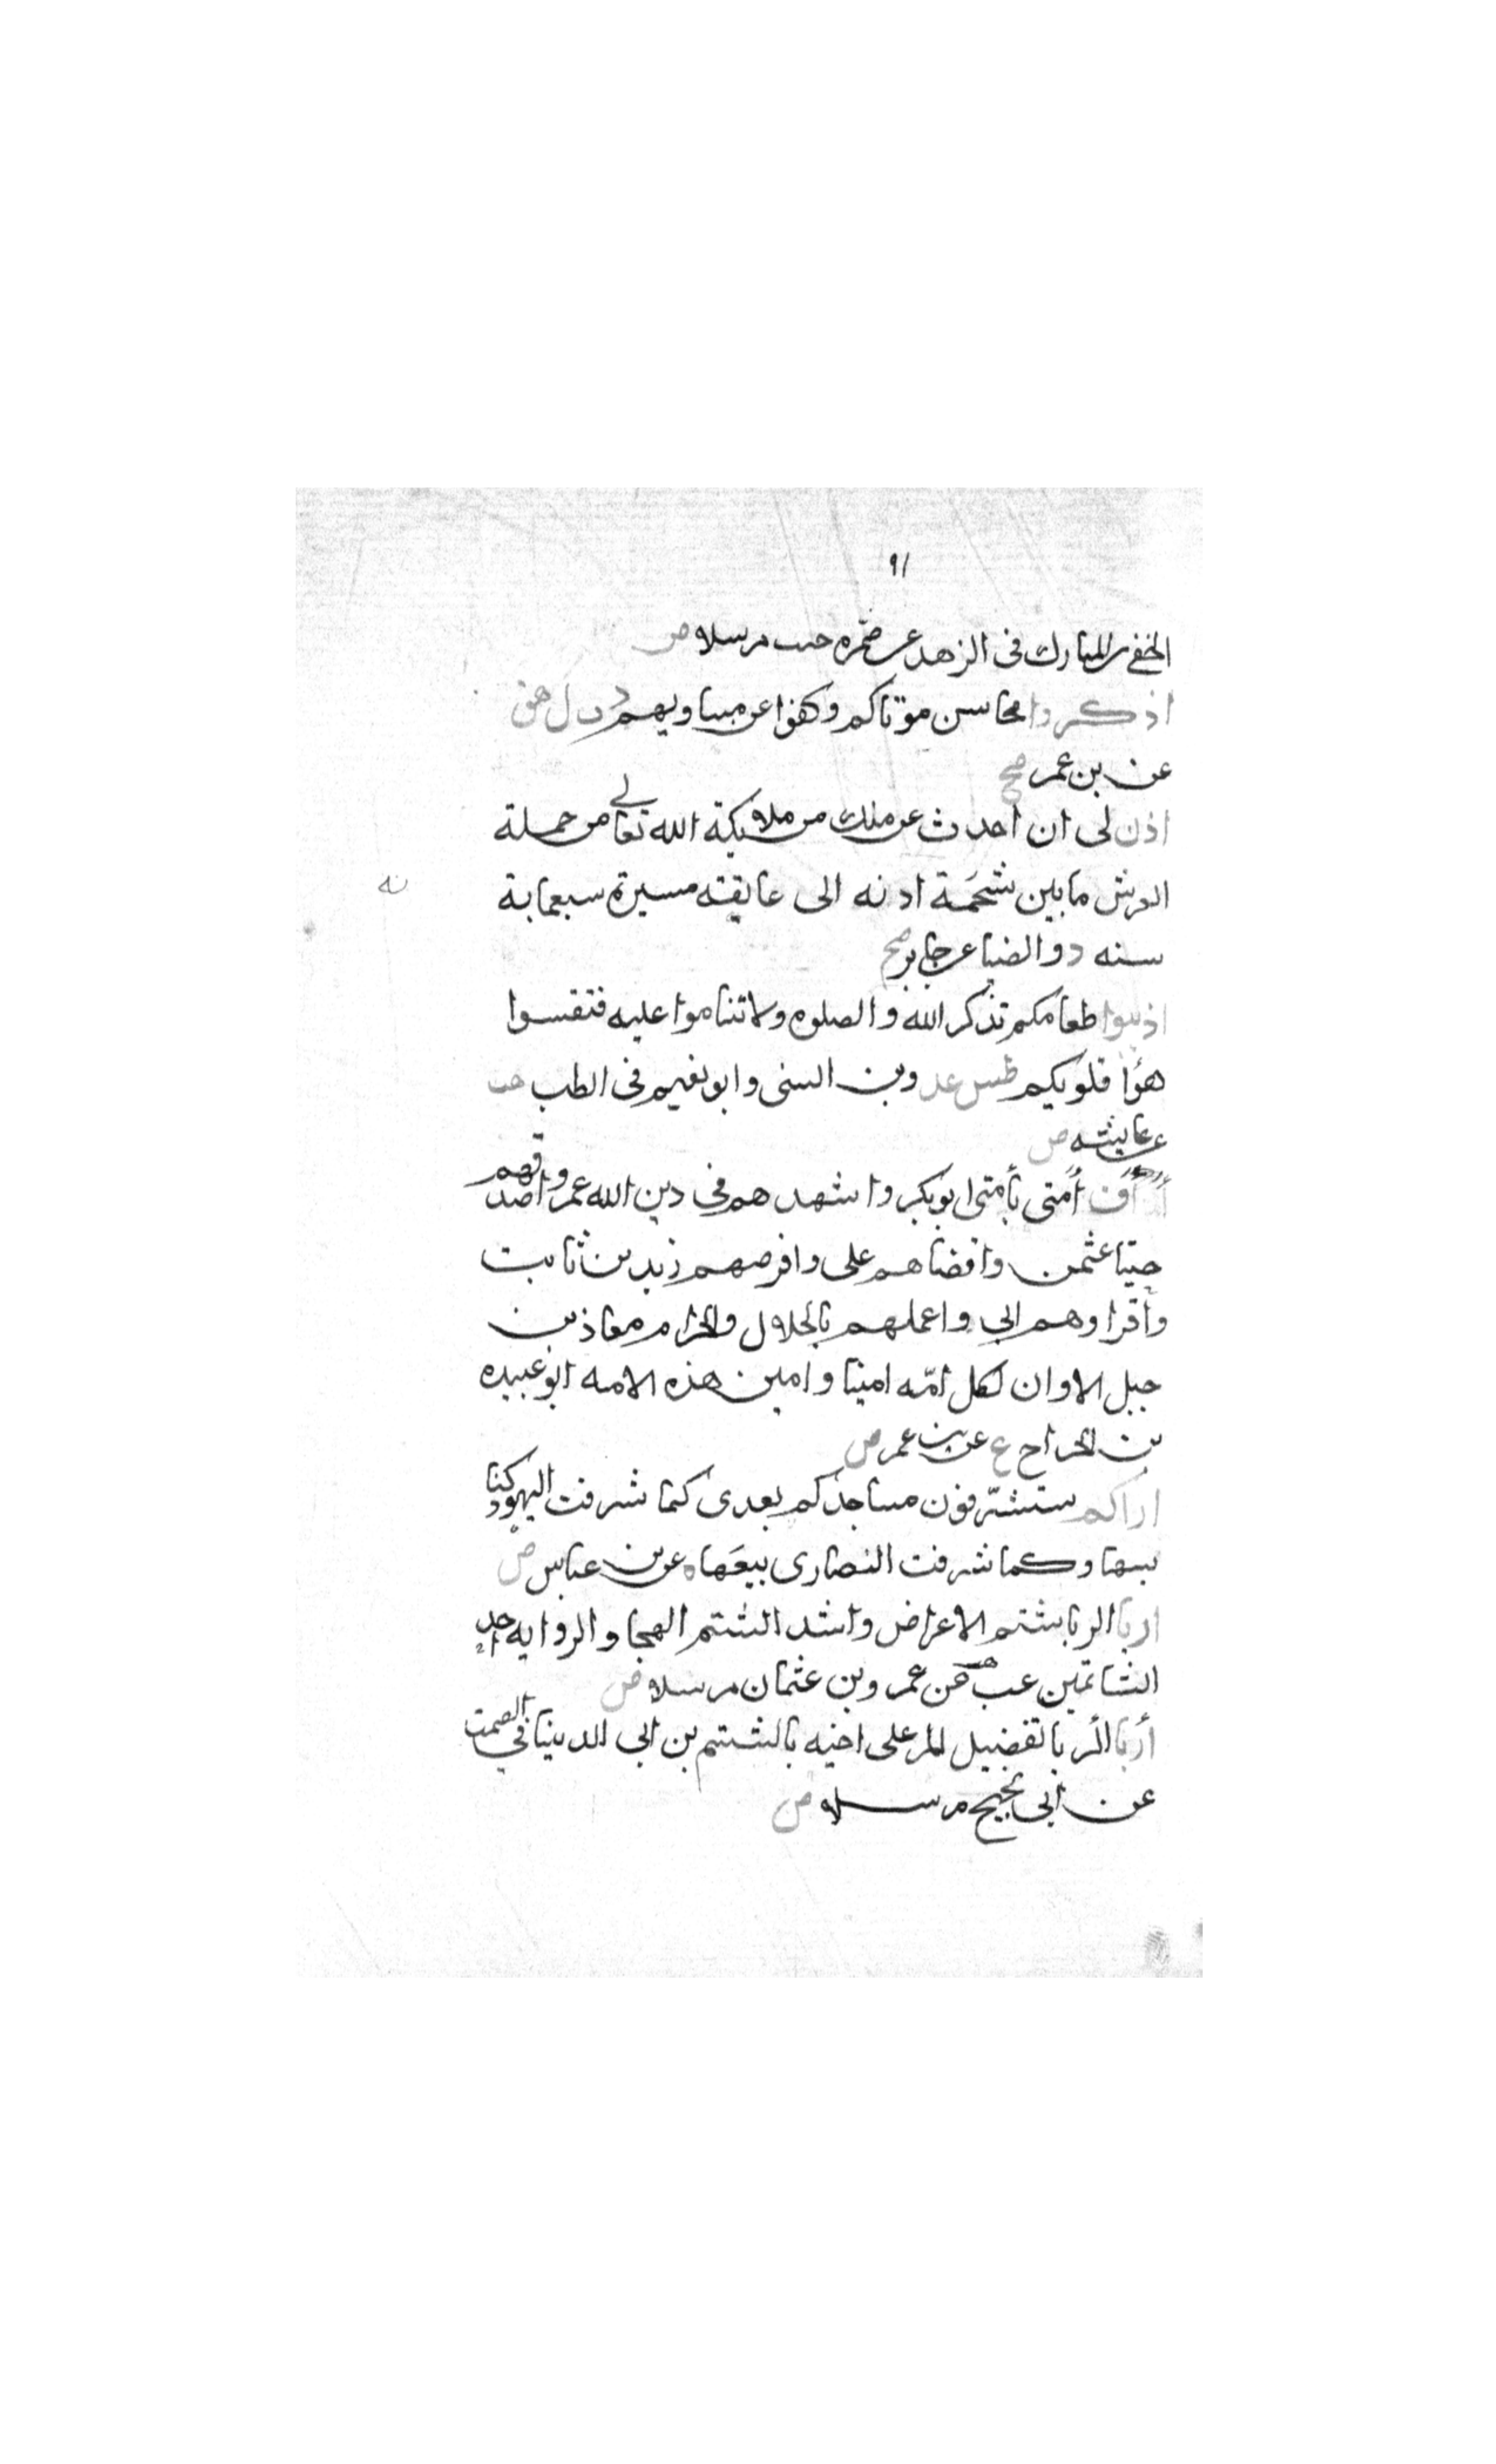 ٩١
الخفي بن المبارك في الزهد عن ضمره حبيب مرسلا ض
اذكروا محاسن موتاكم وكفوا عن مساويهم د ت ك هق
عن بن عمر صح
اذن لى ان احدث عن ملك من ملايكة الله تعالى من حملة
العرش ما بين شحمة ادنه الى عايقته مسيرة سبعماية
سنه د والضيا عن جابر صح
اذيبوا طعامكم بذكر الله والصلوه ولا تناموا عليه فتقسوا
قلوبكم طس عد وبن السنى وابو نعيم فى الطب هب
عن عايشه ض
أرأف أمتى بأمتى ابو بكر واشدهم في دين الله عمر واصدقهم
حيا عثمن واقضاهم على وافرضهم زيد بن ثابت
وأقراوهم ابي واعلمهم بالحلال والحرام معاذ بن
جبل الا وان لكل امّه امينا وامين هذه الامه ابو عبيده
بن الجراح ع عن بن عمر ض
اراكم ستشرّفون مساجدكم بعدى كما شرفت اليهود كنا
يسها وكما شرفت النصارى بيعَها ه عن بن عباس ض
اربا الربا شتم الاعراض واشد الشتم الهجا والروايه احد
الشاتمين عب هب عن عمرو بن عثمان مرسلا ض
أربا الربا تفضيل المر على اخيه بالشتم بن ابى الدنيا في الصمت
عن ابى نجيح مرسلا ض